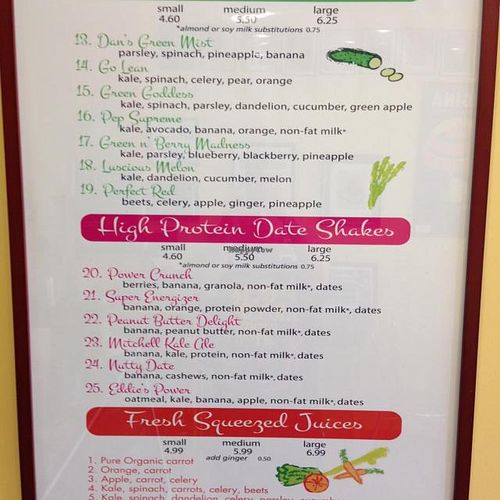 small medium large
4.60 5.50 6.25
*almond or soy milk substitutions 0.75
13. Dan's Green Mist
parsley, spinach, pineapple, banana
14. Go Lean
kale, spinach, celery, pear, orange
15. Green Goddess
kale, spinach, parsley, dandelion, cucumber, green apple
16. Pep Supreme
kale, avocado, banana, orange, non-fat milk*
17. Green n' Berry Madness
kale, parsley, blueberry, blackberry, pineapple
18. Luscious Melon
kale, dandelion, cucumber, melon
19. Perfect Red
beets, celery, apple, ginger, pineapple
High Protein Date Shakes
small medium large
4.60 5.50 6.25
*almond or soy milk substitutions 0.75
20. Power Crunch
berries, banana, granola, non-fat milk*, dates
21. Super Energizer
banana, orange, protein powder, non-fat milk*, dates
22. Peanut Butter Delight
banana, peanut butter, non-fat milk*, dates
23. Mitchell Kale Ale
banana, kale, protein, non-fat milk*, dates
24. Nutty Date
banana, cashews, non-fat milk*, dates
25. Eddie's Power
oatmeal, kale, banana, apple, non-fat milk*, dates
Fresh Squeezed Juices
small medium large
4.99 5.99 6.99
add ginger 0.50
1. Pure Organic carrot
2. Orange, carrot
3. Apple, carrot, celery
4. Kale, spinach, carrots, celery, beets
5. Kale, spinach, dandelion, celery, parsley, cucumber